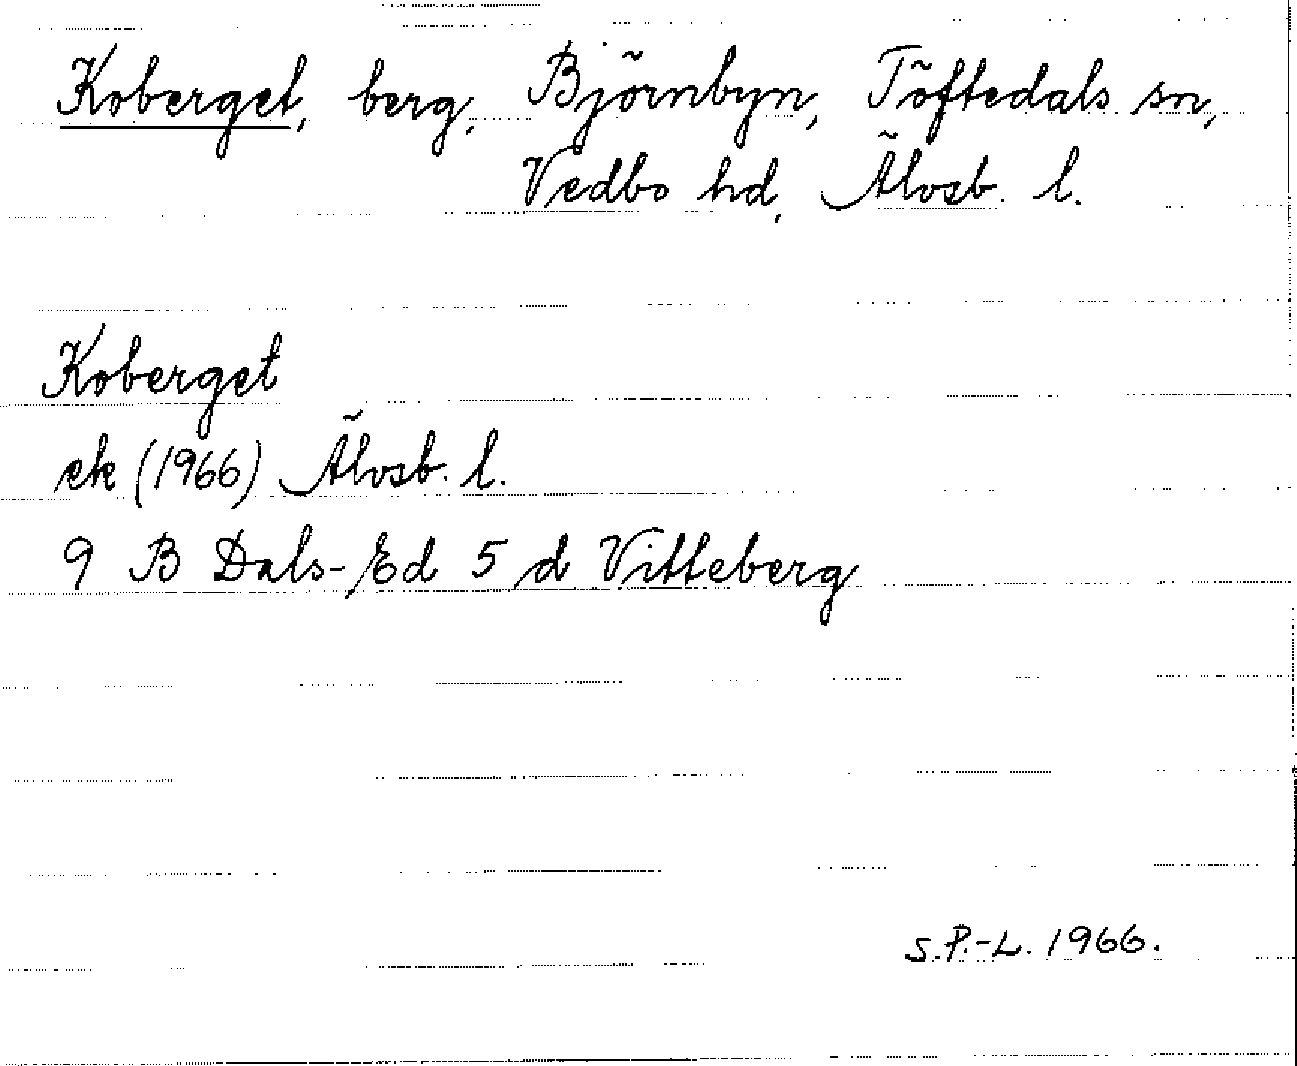 Koberget, berg, Björnbyn, Töftedals sn,
Vedbo hd, Älvsb. l.
Koberget
ek (1966) Älvsb. l.
9 B Dals-Ed 5 d Vitteberg
S.P.-L. 1966.